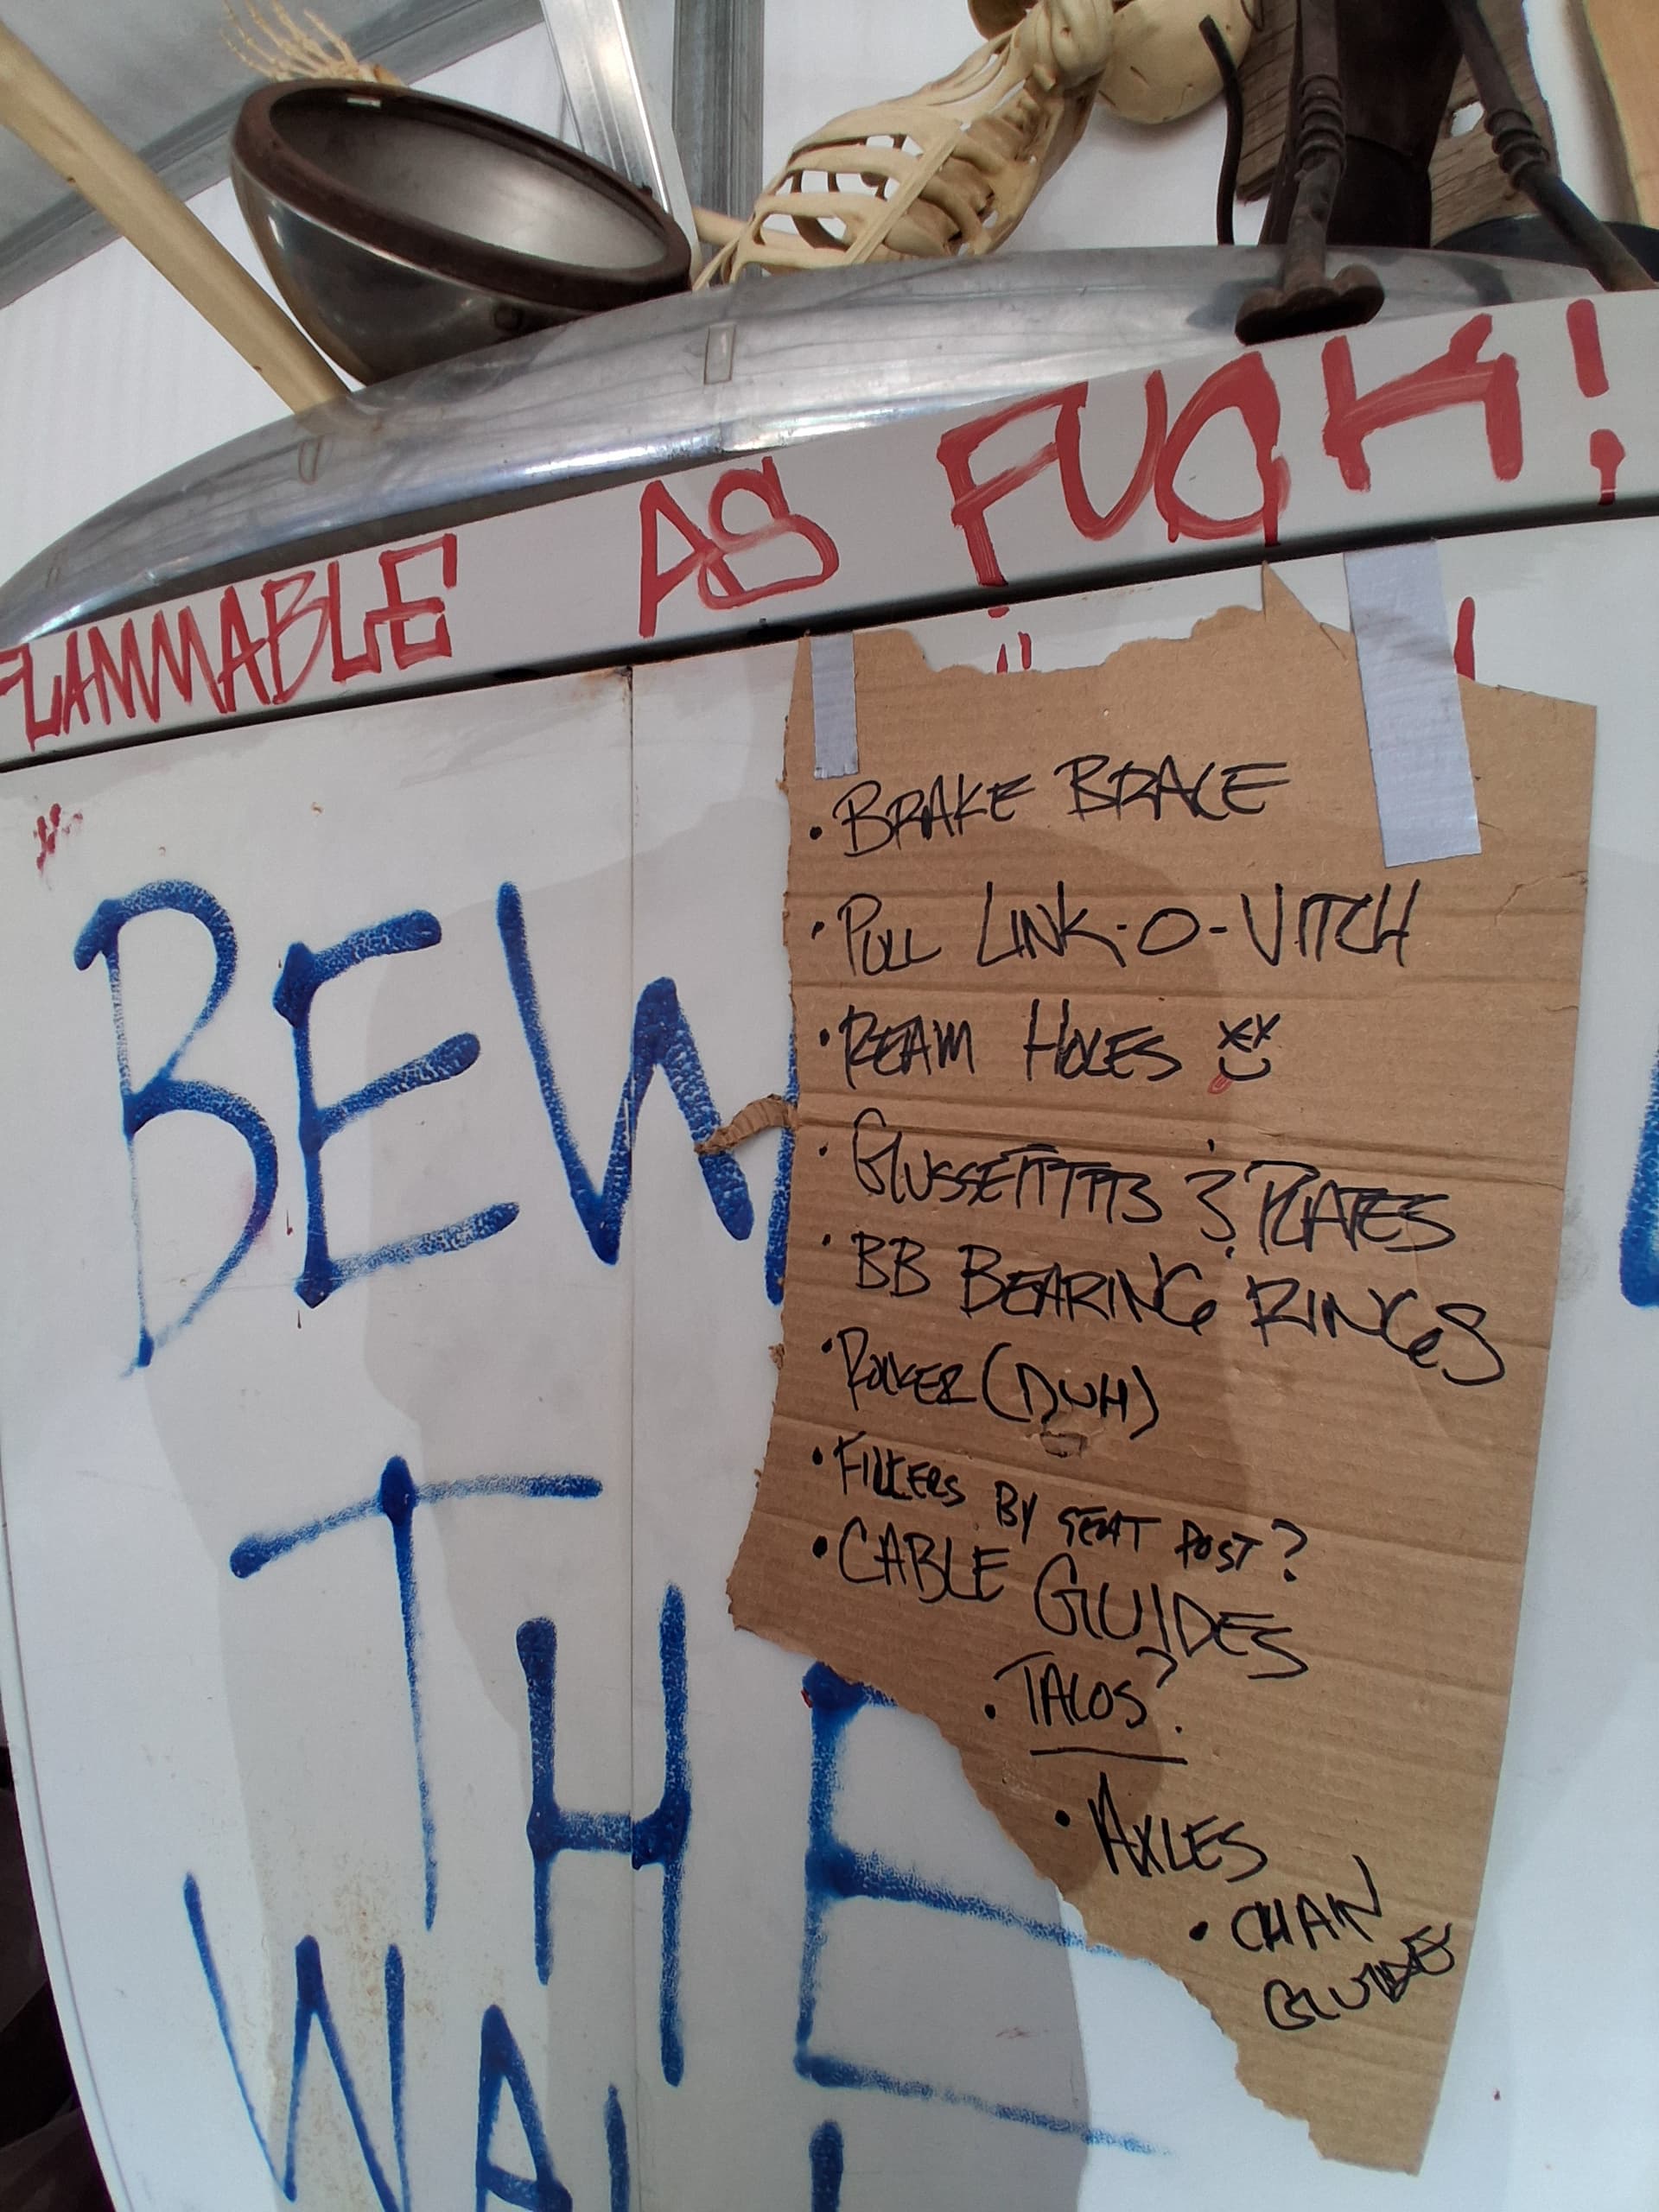 FLAMMABLE AS FUCK!
• BRAKE BRACE
• PULL LINK-O-VITCH
• REAM HOLES
• GUSSETTTTS & PLATES
• BB BEARING RINGS
• ROCKER (DUH)
• FILLERS BY SEAT POST?
• CABLE GUIDES
• TACOS?
• AXLES
• CHAIN
GUIDES
BEW
THE
WA